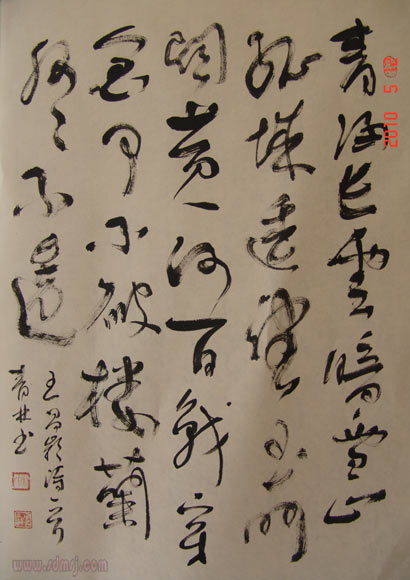 青海长雲暗雪山
孤城遥望玉门
關黄沙百戰穿
金甲不破楼蘭
终不還
王昌龄诗一首
青林书
2010 5 12
www.sdmsj.com